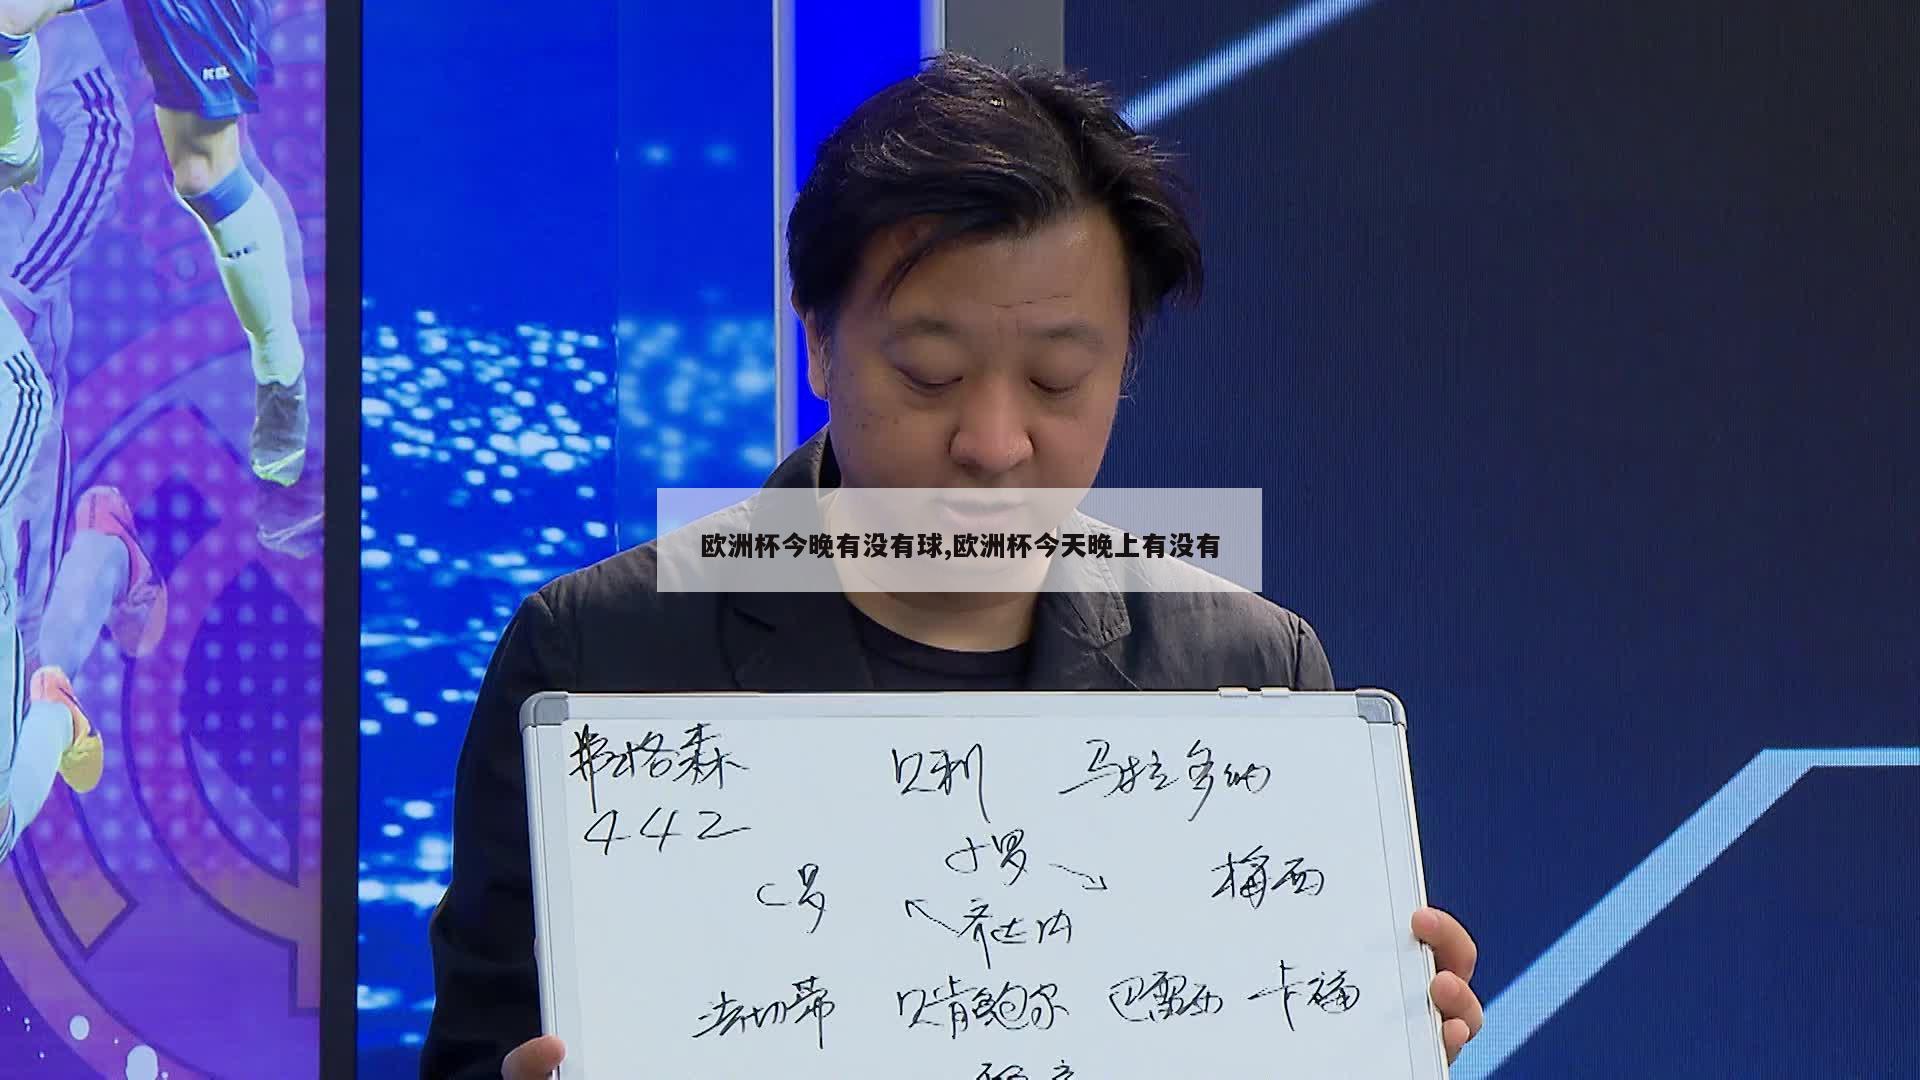 欧洲杯今晚有没有球,欧洲杯今天晚上有没有
弗格森 贝利 马拉多纳
442
小罗
C罗 梅西
齐达内
法切蒂 贝肯鲍尔 巴雷西 卡福